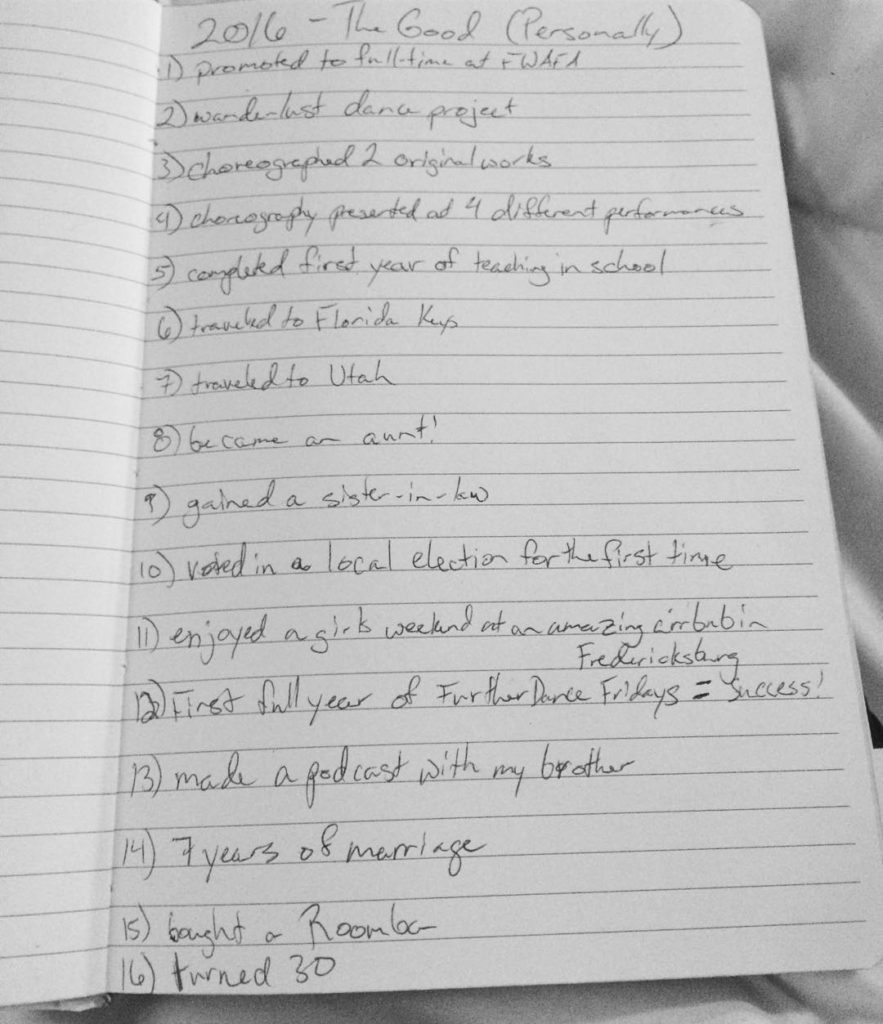 2016 - The Good (Personally)
1) promoted to full-time at FWAFA
2) wanderlust dance project
3) choreographed 2 original works
4) choreography presented at 4 different performances
5) completed first year of teaching in school
6) traveled to Florida Keys
7) traveled to Utah
8) became an aunt!
9) gained a sister-in-law
10) voted in a local election for the first time
11) enjoyed a girls weekend at an amazing airbnb in
Fredericksburg
12) First full year of Further Dance Fridays = Success!
13) made a podcast with my brother
14) 7 years of marriage
15) bought a Roomba
16) turned 30